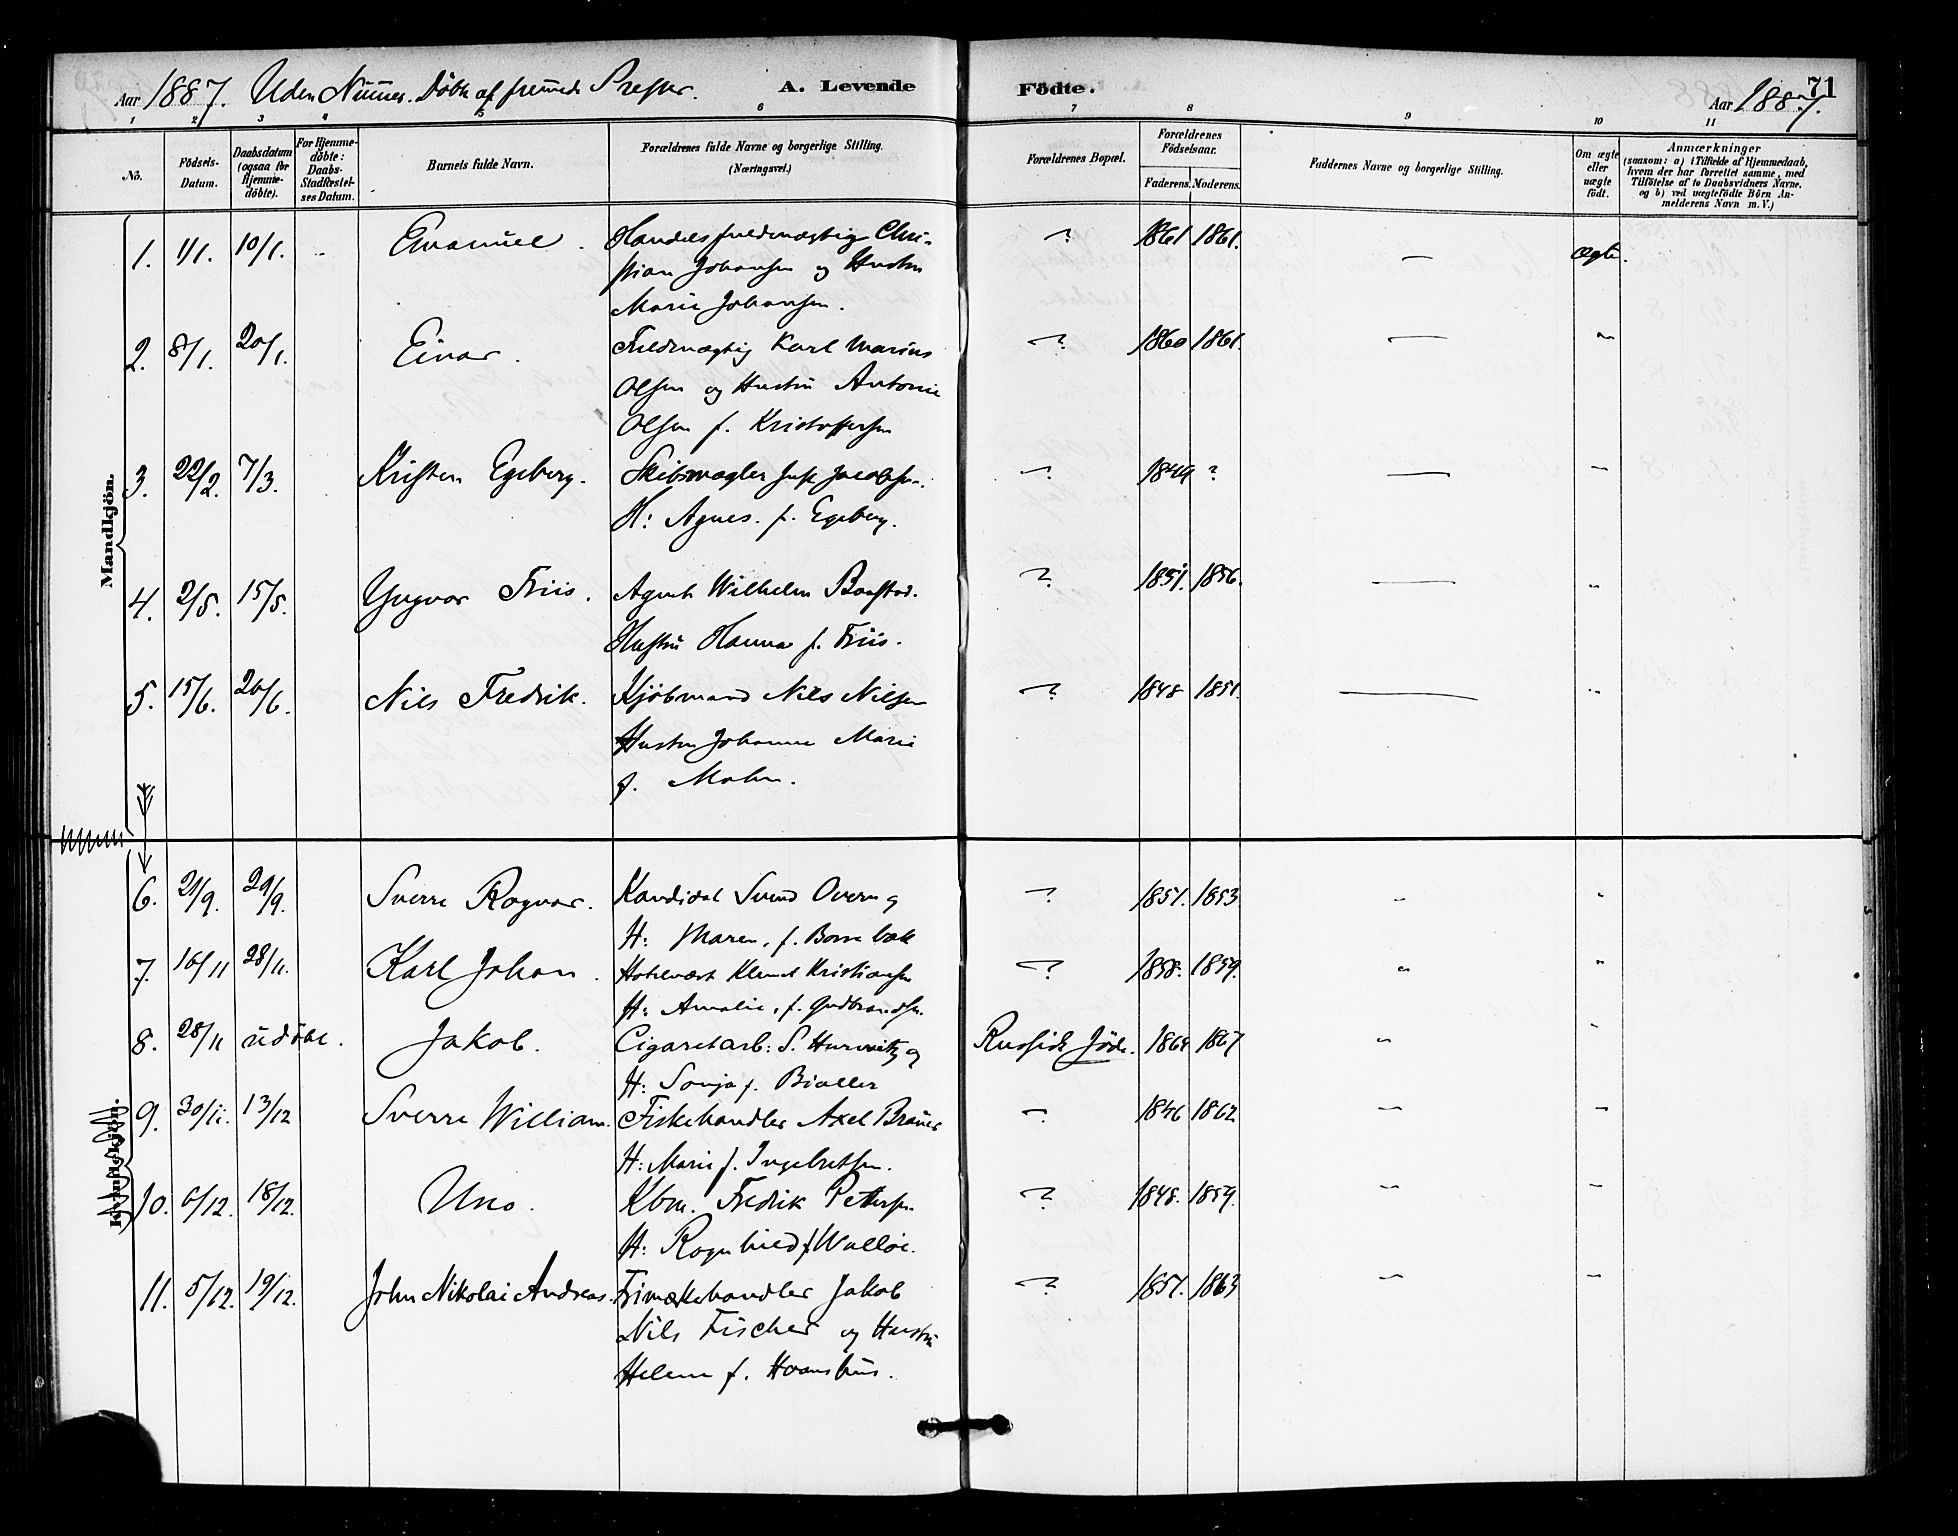 Aar 1887. Uden Numer. Döbte af fremmede Prester. A. Levende Födte. Aar 1887. 71
1 2 3 4 5 6 7 8 9 10 11
No.
Födsels-Datum.
Daabsdatum (ogsaa for Hjemme-döbte).
For Hjemme-döbte: Daabs-Stadfæstel-ses Datum.
Barnets fulde Navn.
Forældrenes fulde Navne og borgerlige Stilling. (Næringsvei.)
Forældrenes Bopæl.
Forældrenes Födselsaar.
Faderens. Moderens.
Faddernes Navne og borgerlige Stilling.
Om ægte eller uægte födt.
Anmærkninger
(saasom: a) i Tilfælde af Hjemmedaab,
hvem der har forrettet samme, med
Tilföielse af to Daabsvidners Navne,
og b) ved uægtefödte Börn An-
melderens Navn m. V.)
Mandkjön.
1. 1/1. 10/1. - Emanuel. Handelsfuldmægtig Chri- ? 1861 1861. — ægte.
stian Johansen og Hustru
Marie Johansen.
2. 8/1. 20/1. Einar. Fuldmægtig Karl Marius ? 1860 1861. — "
Olsen og Hustru Antonie
Olsen f. Kristoffersen
3. 22/2. 7/3. Kristen Egeberg. Skibsmægler Jacobsen. ? 1849 ? — "
H: Agnes. f. Egeberg.
4. 2/5. 15/5. Yngvar Friis. Agent Wilhelm Baastad. ? 1851. 1856. — "
Hustru Hanna f. Friis.
5. 15/6. 26/6. Nils Fredrik. Kjöbmand Nils Nilsen ? 1848 1851. — "
Hustru Johanne Marie
f. Mohn.
Kvindekjön.
6. 21/9. 29/9. Sverre Ragnar. Kandidat Svend Overn og ? 1851. 1853. " "
H: Maren, f. Borrebæk
7. 16/11 28/11. Karl Johan. Hotelvært Klemet Kristiansen ? 1858. 1859. " "
H: Amalie, f. Gudbrandsen.
8. 28/11 udöbt. Jakob. Cigaretarb: S. Hurwitz og Russisk Jöde. 1864 1867 " "
H: Sonja f. Bialler
9. 30/11. 13/12 Sverre William. Fiskehandler Axel Bräuer ? 1846 1862 — "
H: Marie f. Ingebretsen.
10. 6/12. 18/12. Uno. Kbm. Fredrik Pettersen ? 1848. 1859. — "
H: Ragnhild f. Walløe.
11. 5/12. 19/12. John Nikolai Andreas. Frimærkehandler Jakob ? 1857. 1863 — "
Nils Fischer og Hustru
Helene f. Hvamshus.